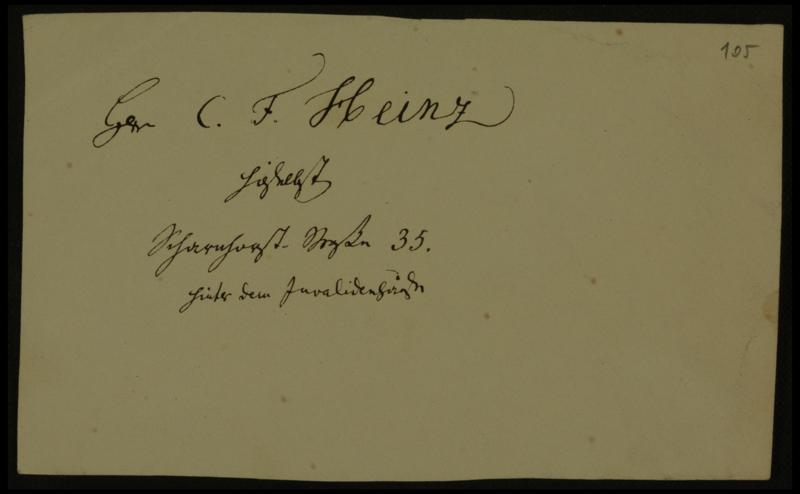 105
Herr C. F. Heinz
hieselbst
Scharnhorst-Straße 35.
hinter dem Invalidenhause